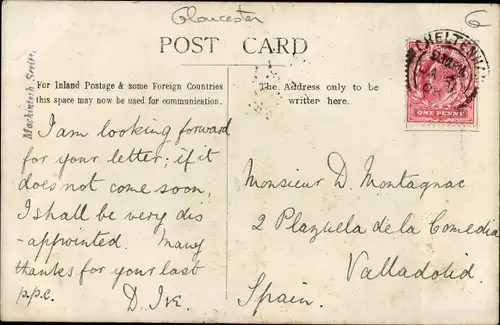 Gloucester
6
POST CARD
CHELTENHAM
Mackintosh Series
For Inland Postage & some Foreign Countries
this space may now be used for communication.
The Address only to be
writter here.
ONE PENNY
I am looking forward
for your letter; if it
does not come soon,
I shall be very dis
-appointed. Many
thanks for your last
p.p.c. D. Ive.
Monsieur D. Montagnac
2 Plazuela de la Comedia
Valladolid.
Spain.